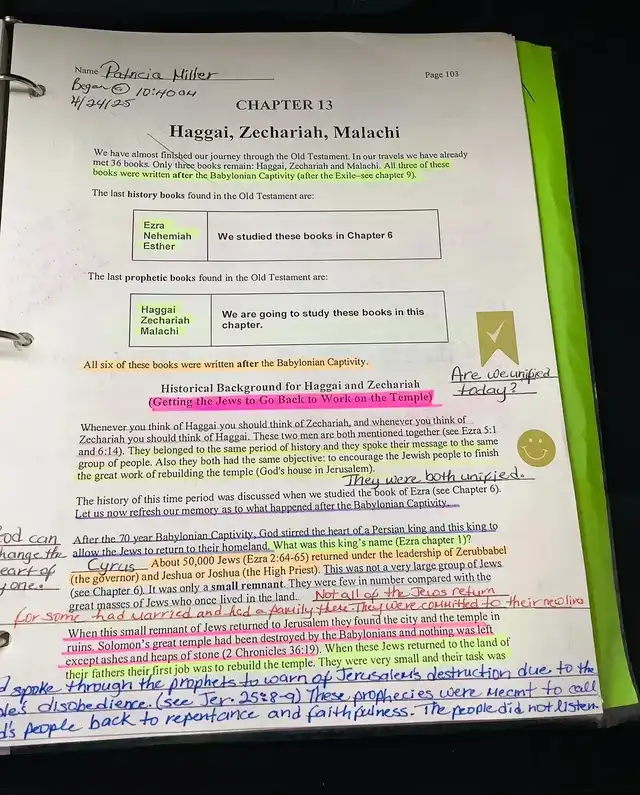 Name Patricia Miller
Page 103
Began @ 10:40am
4/24/25
CHAPTER 13
Haggai, Zechariah, Malachi
We have almost finished our journey through the Old Testament. In our travels we have already
met 36 books. Only three books remain: Haggai, Zechariah and Malachi. All three of these
books were written after the Babylonian Captivity (after the Exile–see chapter 9).
The last history books found in the Old Testament are:
Ezra
Nehemiah
Esther
We studied these books in Chapter 6
The last prophetic books found in the Old Testament are:
Haggai
Zechariah
Malachi
We are going to study these books in this
chapter.
All six of these books were written after the Babylonian Captivity.
Are we unified
today?
Historical Background for Haggai and Zechariah
(Getting the Jews to Go Back to Work on the Temple)
Whenever you think of Haggai you should think of Zechariah, and whenever you think of
Zechariah you should think of Haggai. These two men are both mentioned together (see Ezra 5:1
and 6:14). They belonged to the same period of history and they spoke their message to the same
group of people. Also they both had the same objective: to encourage the Jewish people to finish
the great work of rebuilding the temple (God's house in Jerusalem).
They were both unified.
The history of this time period was discussed when we studied the book of Ezra (see Chapter 6).
Let us now refresh our memory as to what happened after the Babylonian Captivity.
After the 70 year Babylonian Captivity, God stirred the heart of a Persian king and this king to
allow the Jews to return to their homeland. What was this king's name (Ezra chapter 1)?
Cyrus About 50,000 Jews (Ezra 2:64-65) returned under the leadership of Zerubbabel
(the governor) and Jeshua or Joshua (the High Priest). This was not a very large group of Jews
(see Chapter 6). It was only a small remnant. They were few in number compared with the
great masses of Jews who once lived in the land. Not all of the Jews return
for some had Married and had a family there. They were committed to their new live
When this small remnant of Jews returned to Jerusalem they found the city and the temple in
ruins. Solomon's great temple had been destroyed by the Babylonians and nothing was left
except ashes and heaps of stone (2 Chronicles 36:19). When these Jews returned to the land of
their fathers their first job was to rebuild the temple. They were very small and their task was
spoke through the prophets to warn of Jerusalem's destruction due to the
disobedience. (see Jer. 25:8-9) These prophecies were meant to call
people back to repentance and faithfulness. The people did not listen.